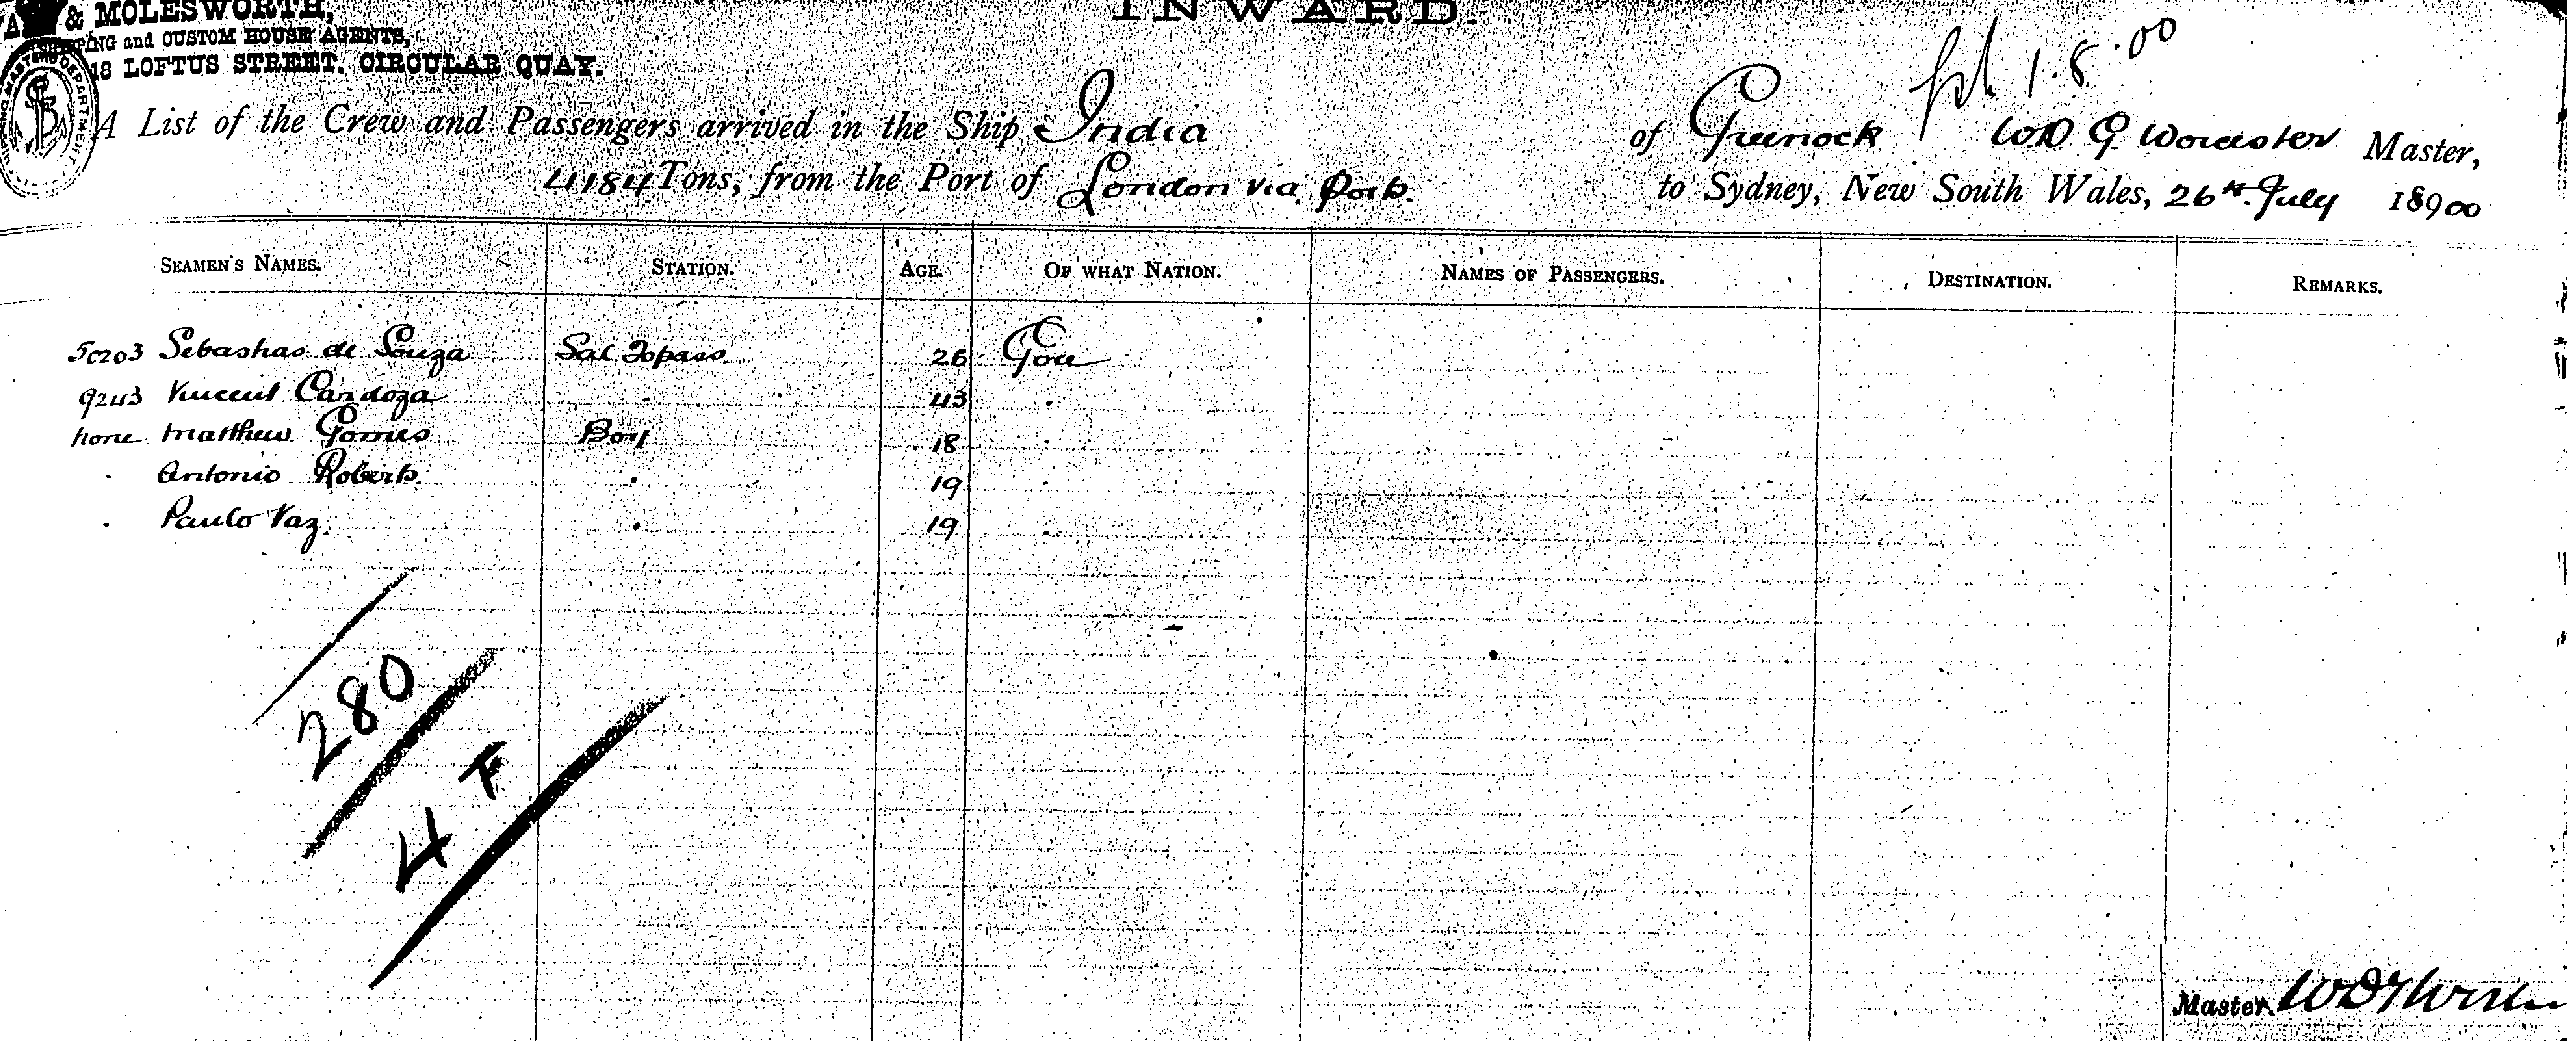 & MOLESWORTH,
INWARD.
SHIPPING and CUSTOM HOUSE AGENTS,
18 LOFTUS STREET. CIRCULAR QUAY.
1.8.00
A List of the Crew and Passengers arrived in the Ship India of Greenock WD G Worcester Master,
4184 Tons, from the Port of London via Ports. to Sydney, New South Wales, 26th July 18900
SEAMEN'S NAMES. STATION. AGE. OF WHAT NATION. NAMES OF PASSENGERS. DESTINATION. REMARKS.
50203 Sebastiao de Souza Sal Topass 26 Goa
9243 Vincent Cardoza " 43 "
none Matthew Gomes Boy 18 "
" Antonio Roberts " 19 "
" Paulo Vaz. " 19 "
280
4 F
Master WDGWorcester